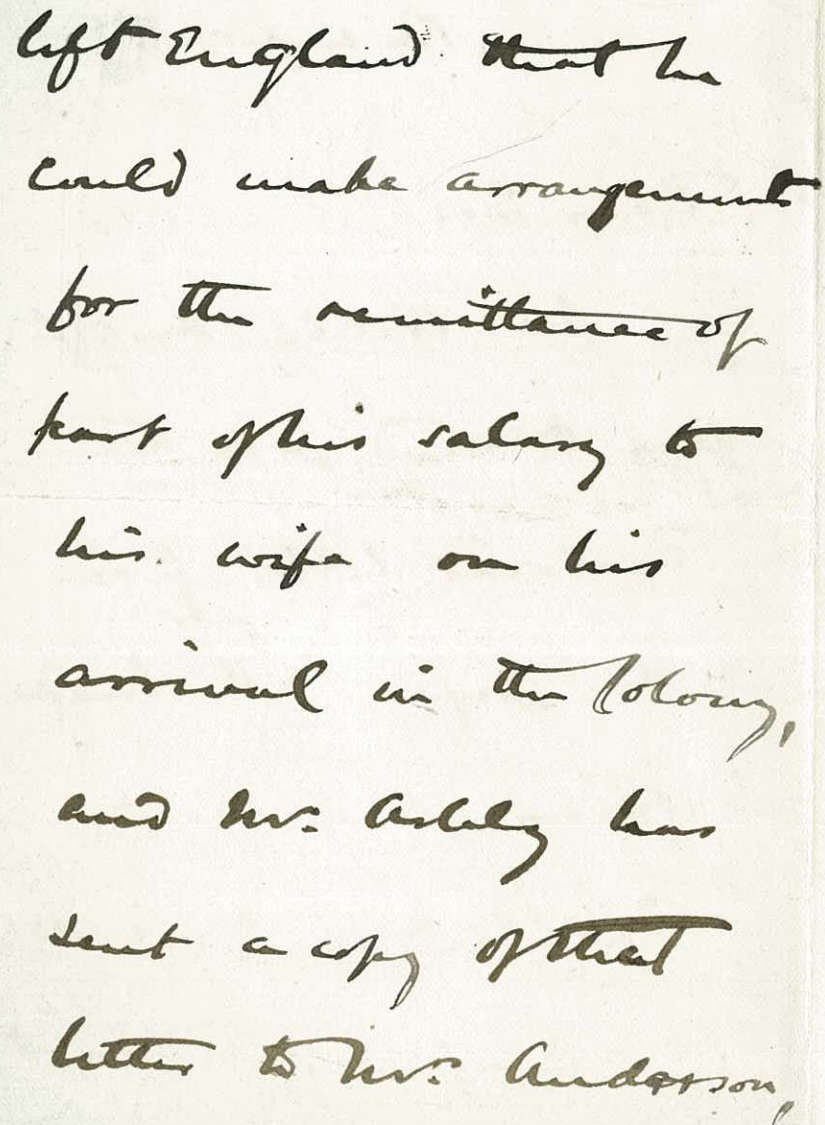 left England that he
could make arrangements
for the remittance of
part of his salary to
his wife on his
arrival in the Colony,
and Mr. Ashley has
sent a copy of that
letter to Mr. Anderson,